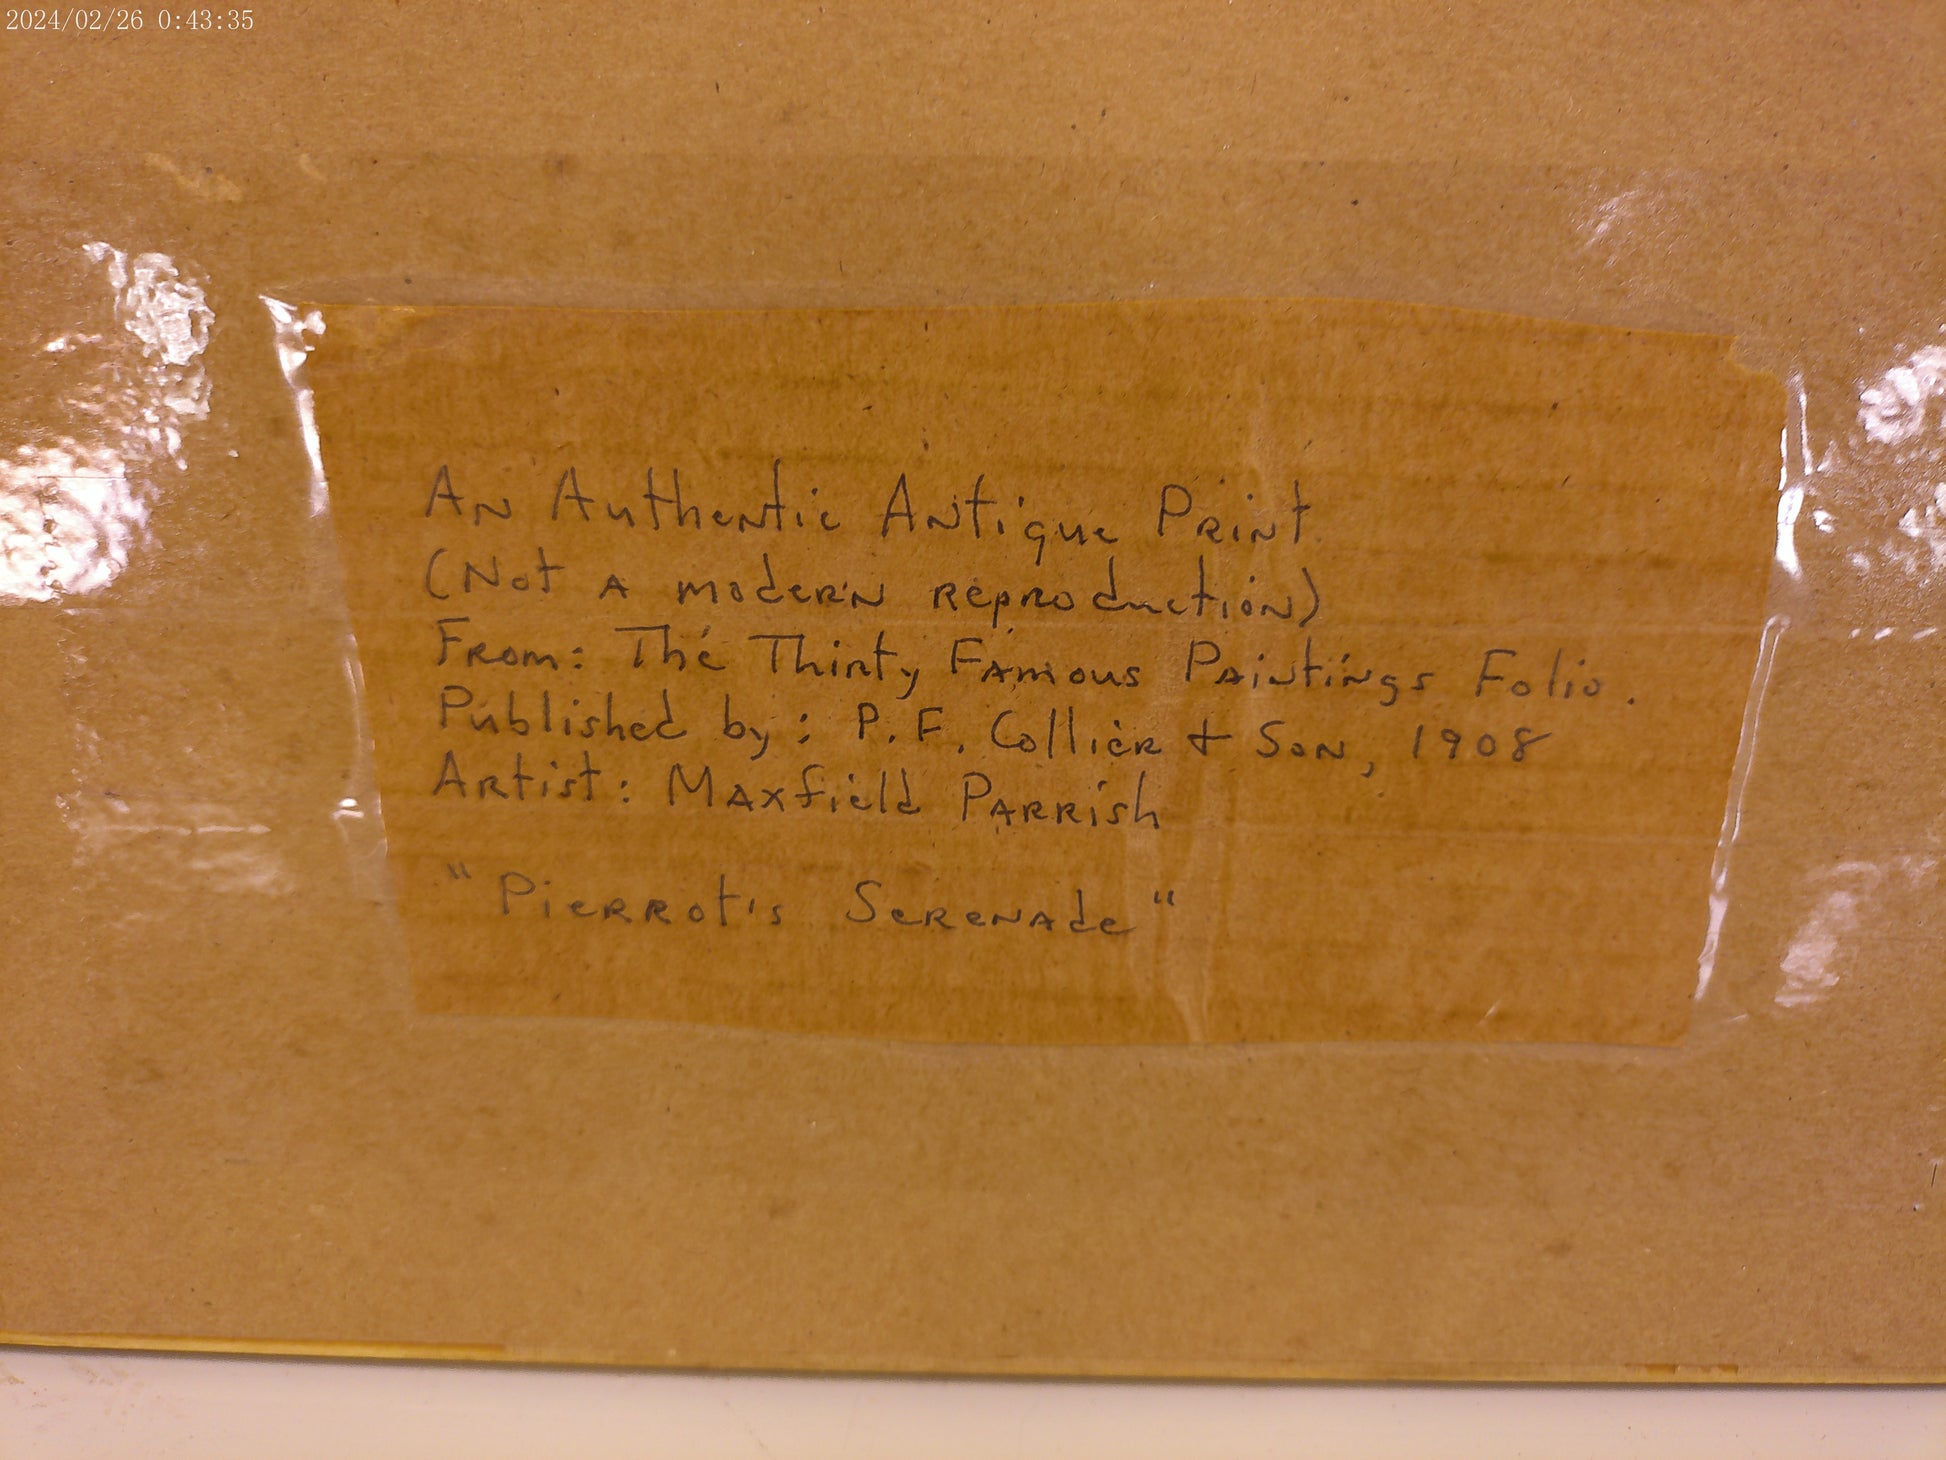 2024/02/26 0:43:35
An Authentic Antique Print
(Not a modern reproduction)
From: The Thirty Famous Paintings Folio.
Published by: P.F. Collier + Son, 1908
Artist: Maxfield Parrish
"Pierrot's Serenade"